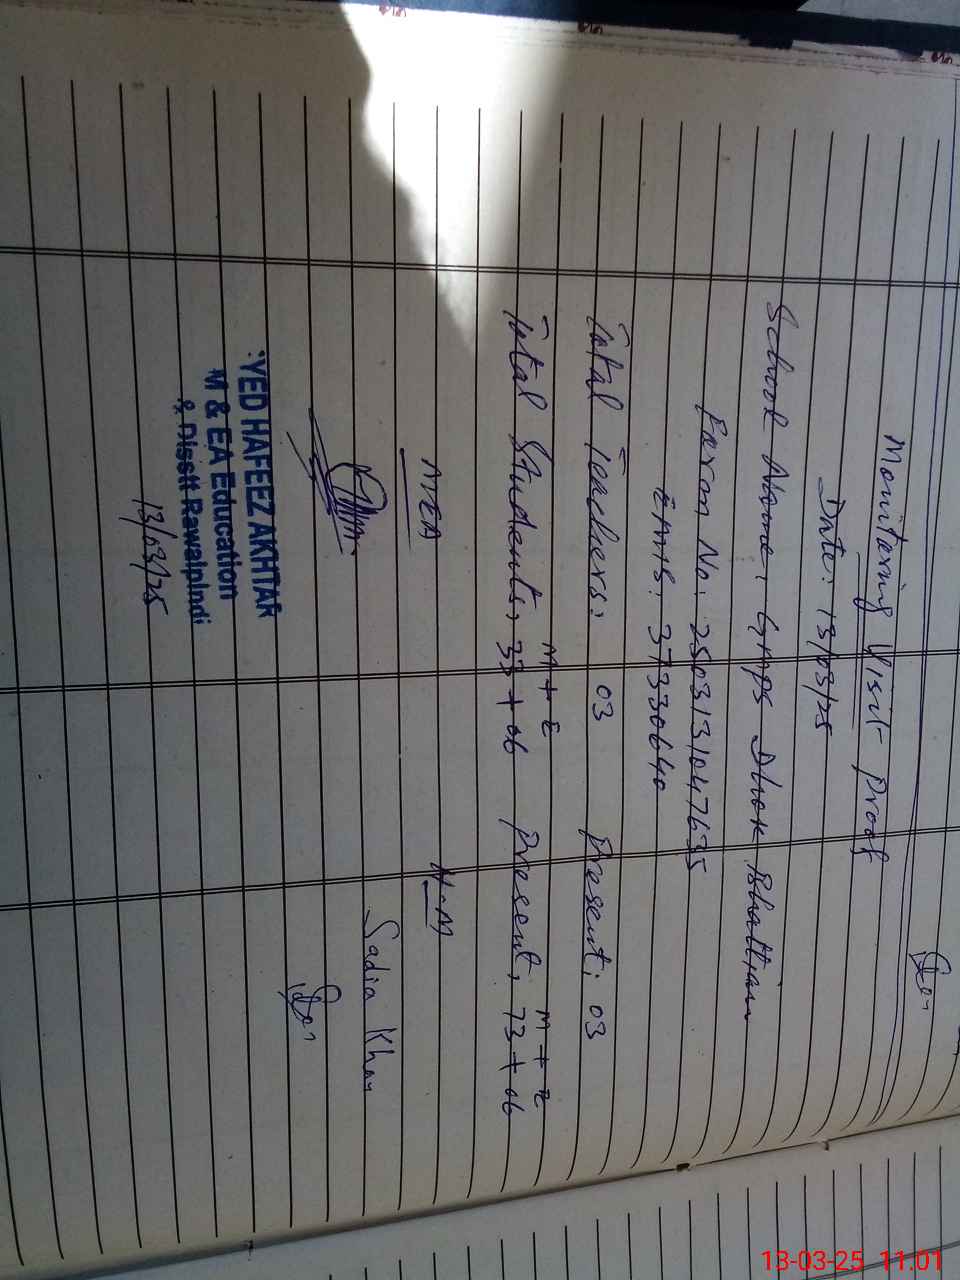 Monitoring Visit Proof
Date: 13/03/25
School Name: GMPS Dhok Bhattian
Farom No: 2503131047635
EMIS: 37330640
Total Teachers: 03 Present: 03
M + E M + E
Total Students, 33 + 06 Present, 73 + 06
MEA H-M
Sadia Khan
:YED HAFEEZ AKHTAR
M & EA Education
& Disstt Rawalpindi
13/03/25
13-03-25 11.01